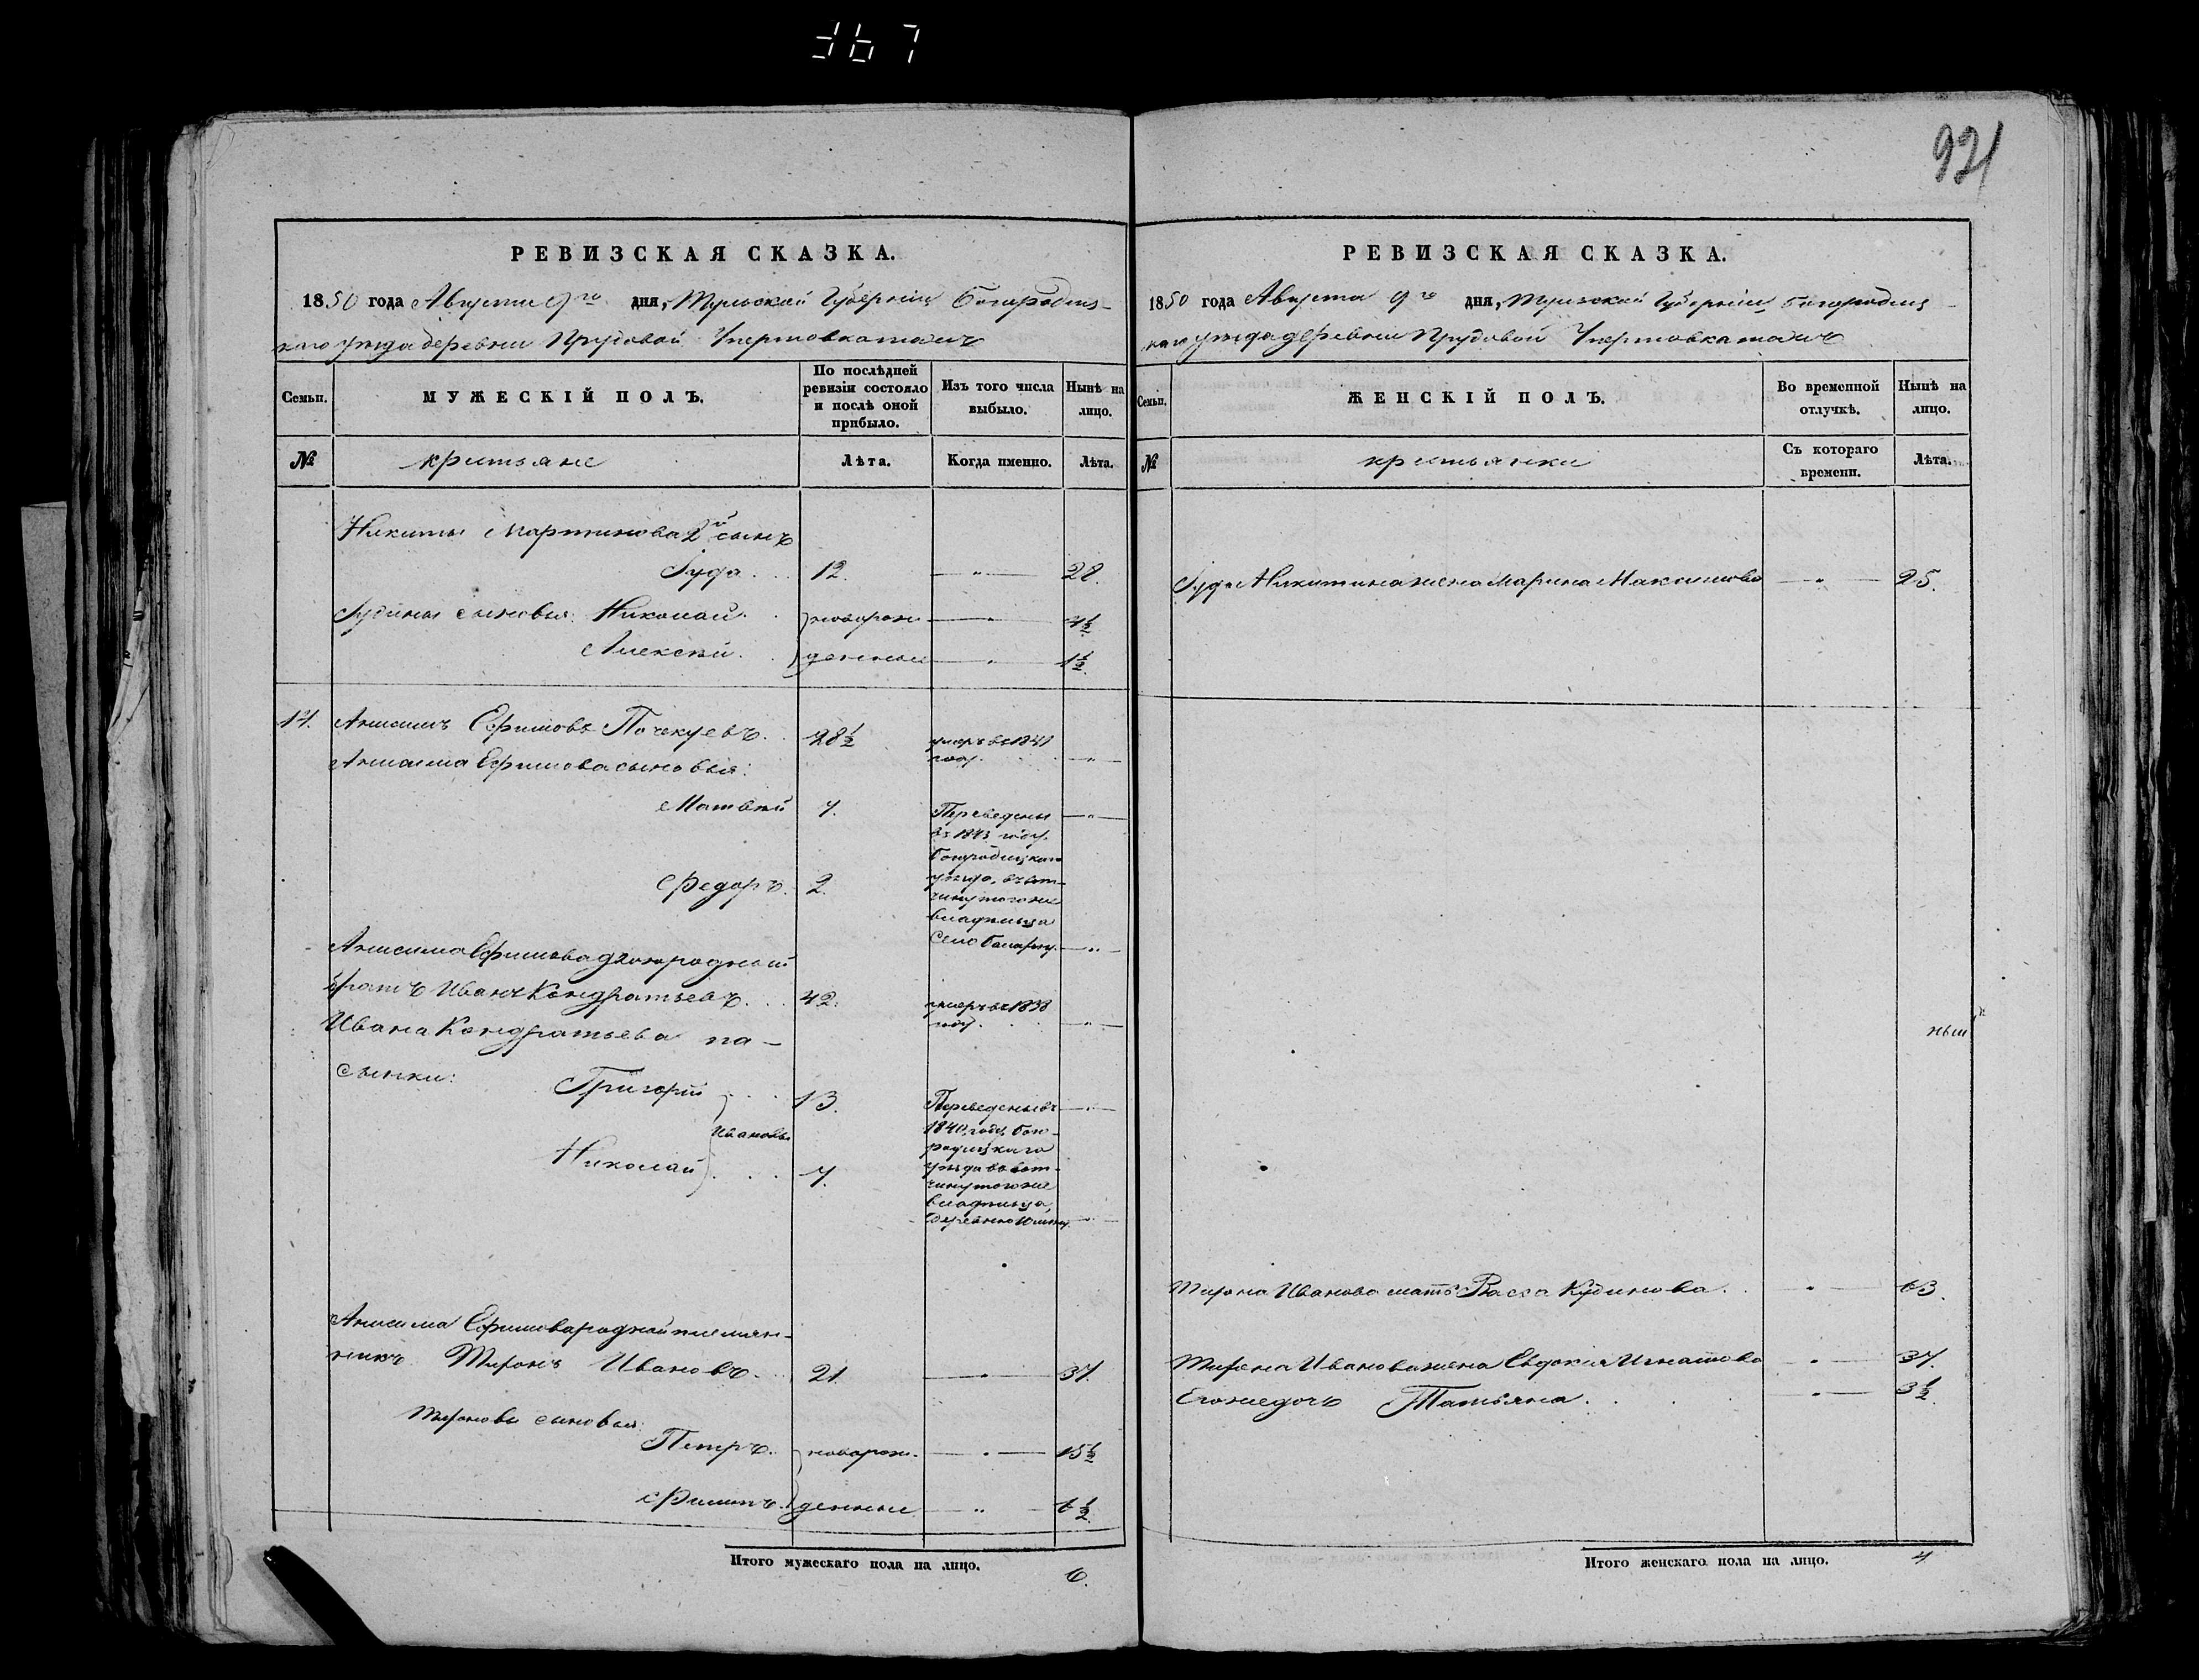 367
921
РЕВИЗСКАЯ СКАЗКА.
1850 года Августа 9го дня, Тульской Губерніи Богородиц-
каго уѣзда деревни Прудовой
Семьи.
МУЖЕСКІЙ ПОЛЪ.
По послѣдней ревизіи состояло и послѣ оной прибыло.
Изъ того числа выбыло.
Нынѣ на лицо.
№
крестьяне
Лѣта.
Когда именно.
Лѣта.
Никиты Мартинова 2й сынъ
Іуда . . . 12. — " — 28.
Іудины сыновья: Николай . . новорож — " —
Алексѣй . . денные — " — 1½.
Анисимъ Ефимовъ Почекуевъ . . 28½ умеръ въ 1841
году. — " —
Анисима Ефимова сыновья:
Матвѣй 7. Переведены — " —
въ 1843 году.
Богородицкаго
Федоръ. 2. уѣзда, въ вот-
чину того же
владѣльца
Село — " —
Анисима Ефимова двоюродной
братъ Иванъ Кондратьевъ . . . 42. умеръ въ 1838
году. — " —
Ивана Кондратьева па-
сынки: Григорій . . . 13. Переведены въ — " —
Ивановы 1840 году, Бого-
родицкаго
Николай . . . 7. уѣзда во вот-
чину того же
владѣльца,
деревню — " —
Анисима Ефимова родной племян-
никъ Миронъ Ивановъ . . 21 — " — 37.
Миронова сыновья:
Петръ. новорож. — " — 15½
Филипъ. денные — " — 6½.
Итого мужескаго пола на лицо. 6.
РЕВИЗСКАЯ СКАЗКА.
1850 года Августа 9го дня, Тульской Губерніи Богородиц-
каго уѣзда деревни Прудовой
Семьи.
ЖЕНСКІЙ ПОЛЪ.
Во временной отлучкѣ.
Нынѣ на лицо.
№
крестьянки
Съ котораго времени.
Лѣта.
Іуда Никитина жена Марина Максимова — " — 25.
ныи
Мирона Иванова мать Васса Кудинова . . — " — 63.
Мирона Иванова жена Евдокія Игнатова — " — 37.
Его же дочь Татьяна . . . — " — 3½.
Итого женскаго пола на лицо. 4